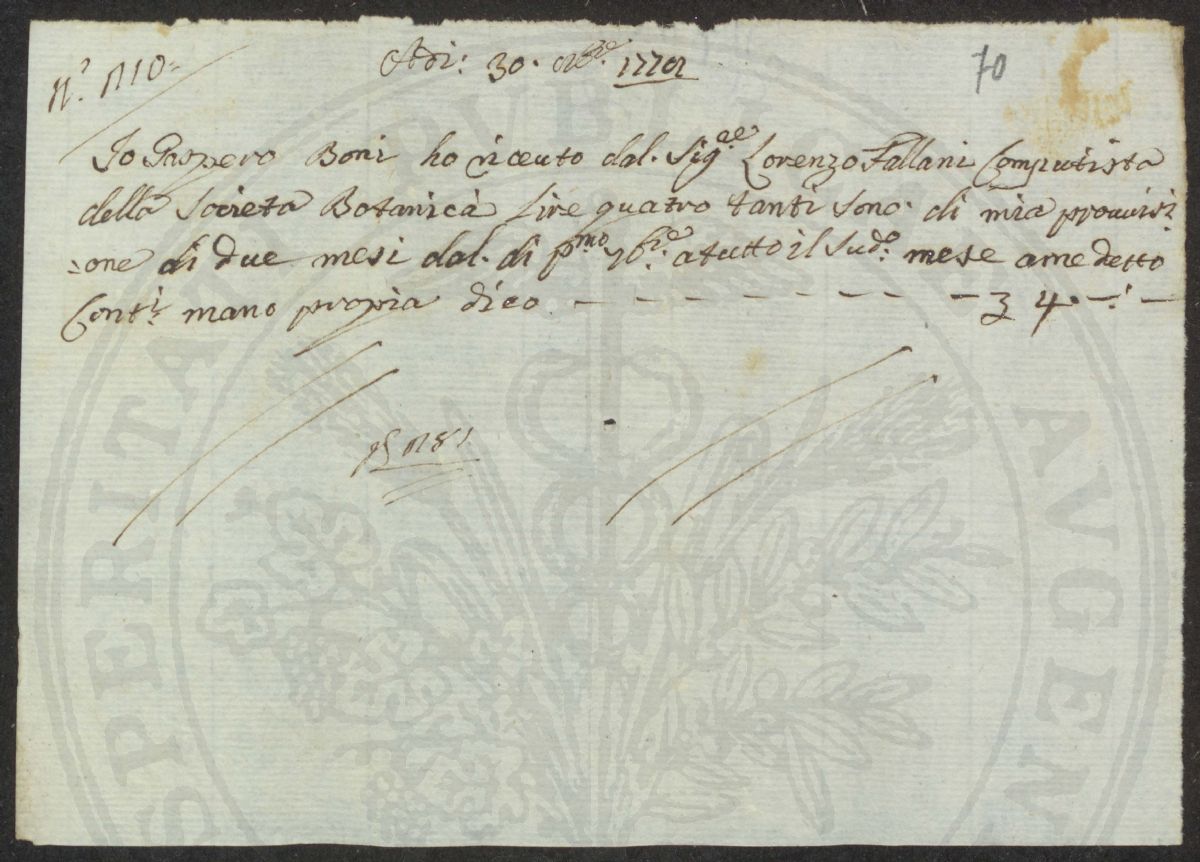 Adi: 30. 9bre. 1770
70
Io Gaspero Boni ho riceuto dal. Sigre. Lorenzo Fallani Computista
della Società Botanica Lire quatro tanti sono. di mia prouisi
=one di due mesi dal. di pmo. 7bre. a tutto il Sudo. mese a me detto
Conti. mano propia dico — — — — — — — — — — 4. —.' —
PERITATI PVBLICAE AVGEN